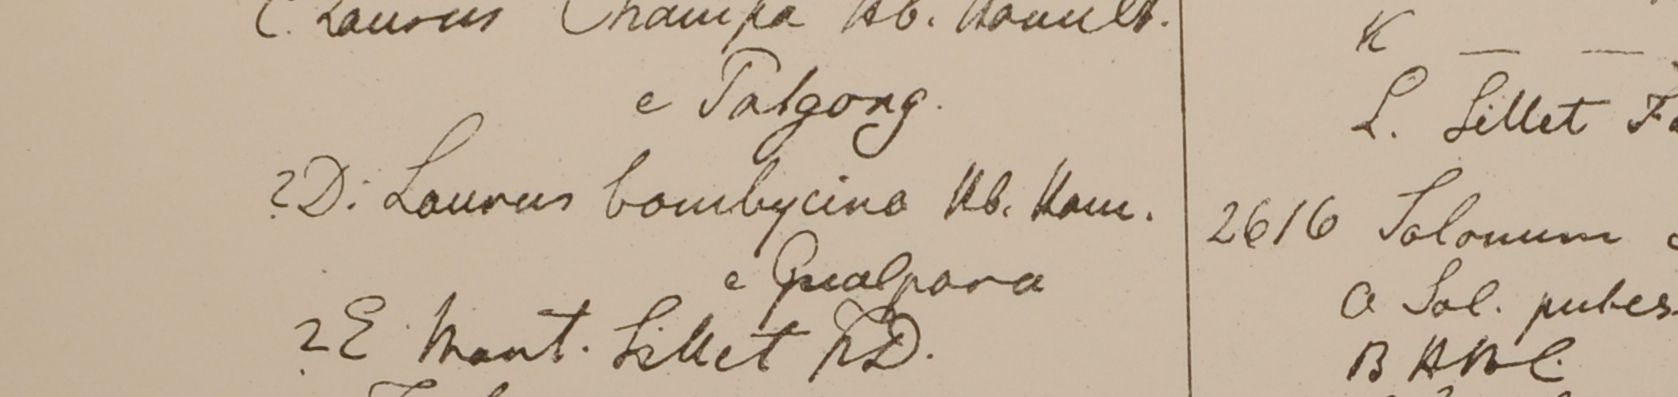 C. Laurus Champa Hb. Hamilt.
e Palgong.
? D. Laurus bombycina Hb. Ham.
e Gualpara
? E Mont. Sillet F.D.
K — —
L. Sillet
2616 Solanum
a Sol. pubes
B HBC.